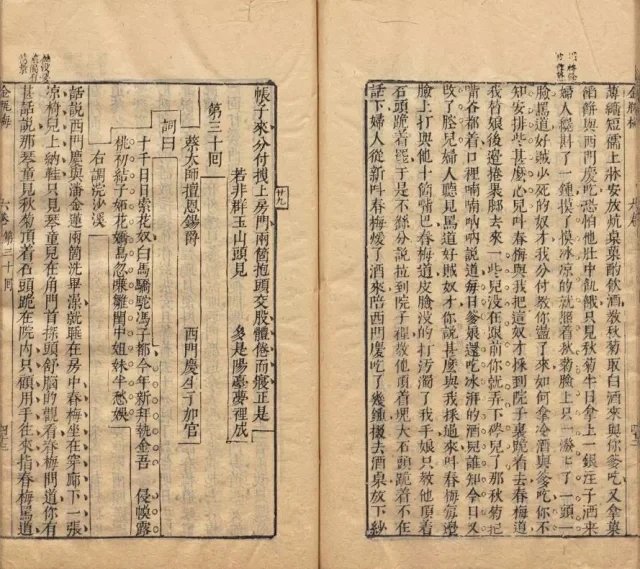 薄纊短襦上牀安放炕桌菓酌飲酒教秋菊取白酒來與爹吃又拿菓
餡餅與西門慶吃恐怕他肚中飢餓只見秋菊半日拿上一銀注子酒來
婦人纔斟了一鍾摸了摸冰凉的就照着秋菊臉上只一潑潑了一頭一
臉罵道好賊少死的奴才我分付教你盪了來如何拿冷酒與爹吃你不
知安排些甚麽心兒叫春梅與我把這奴才採到院子裏跪着去春梅道
我替娘後邊捲裹脚去來一些兒没在跟前你就弄下硶兒了那秋菊把
嘴谷都着口裡喃喃吶吶說道每日爹娘還吃冰湃的酒兒誰知今日又
改了腔兒婦人聽見罵道好賊奴才你說甚麽與我採過來叫春梅每邊
臉上打與他十箇嘴巴春梅道皮臉没的打污濁了我手娘只教他頂着
石頭跪着罷于是不繇分說拉到院子裡教他頂着塊大石頭跪着不在
話下婦人從新叫春梅煖了酒來陪西門慶吃了幾鍾掇去酒桌放下紗
帳子來分付拽上房門兩箇抱頭交股體倦而寢正是
若非群玉山頭見 多是陽臺夢裡成
廿九
第三十回
蔡太師擅恩錫爵 西門慶生子加官
詞曰
十千日日索花奴白馬驕駝馮子都今年新拜執金吾 侵幙露
桃初結子妬花嬌鳥忽嗛雛閨中姐妹半愁娛
右調浣沙溪
話說西門慶與潘金蓮兩箇洗畢澡就睡在房中春梅坐在穿廊下一張
凉椅兒上納鞋只見琴童兒在角門首探頭舒腦的觀看春梅問道你有
甚話說那琴童見秋菊頂着石頭跪在院內只顧用手往來指春梅罵道
金瓶梅 六卷 第三十回 四三